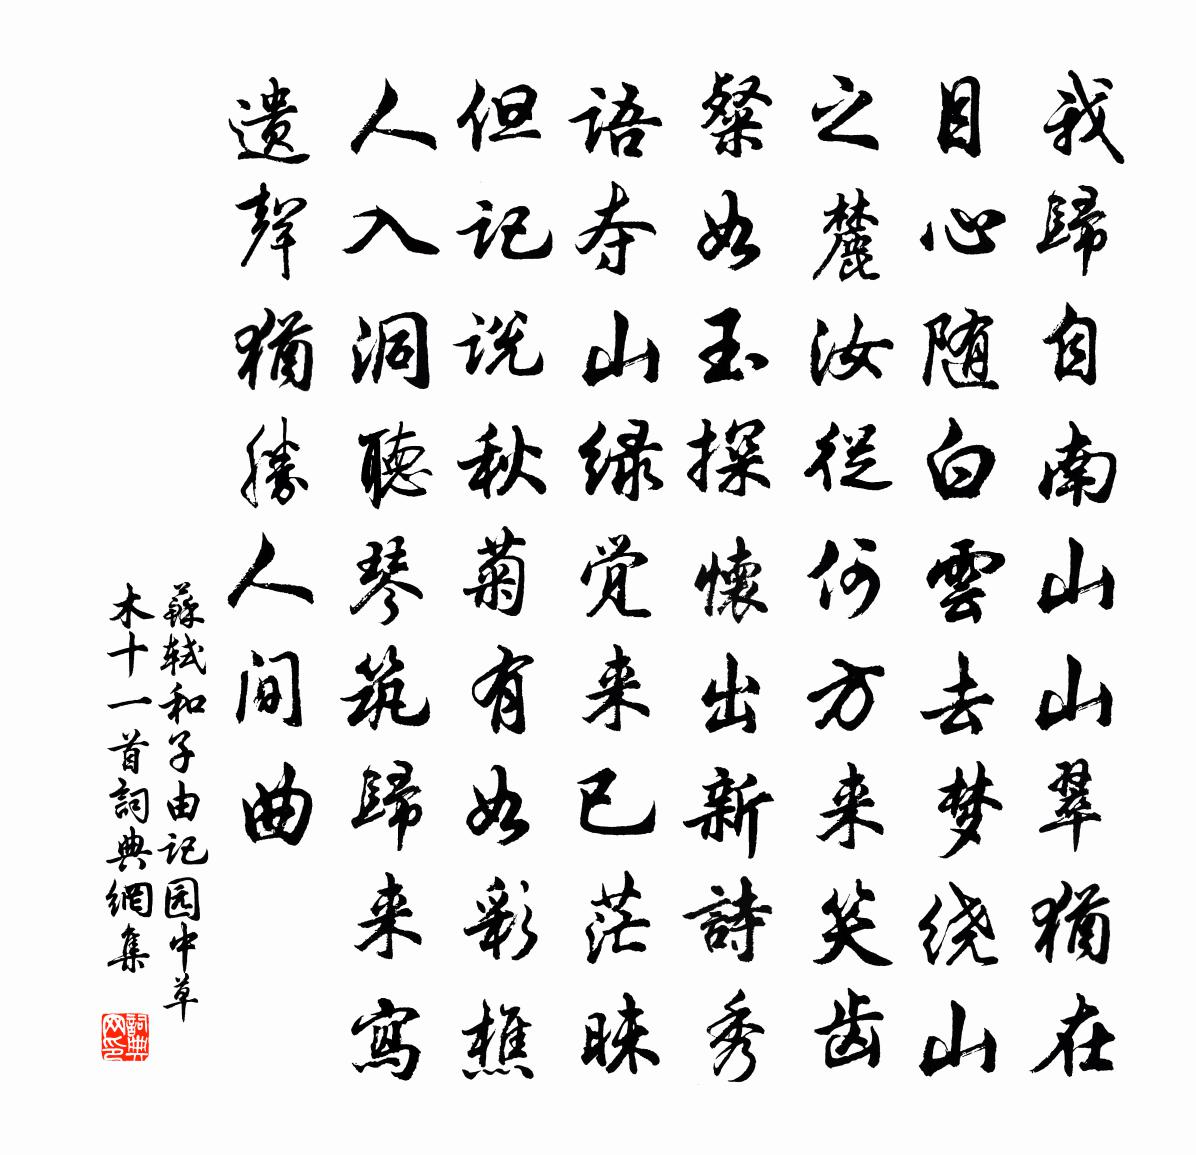 我歸自南山山翠猶在
目心随白雲去梦绕山
之麓汝從何方来笑齿
粲如玉探懷出新詩秀
語夺山绿觉来已茫昧
但记说秋菊有如彩樵
人入洞聽琴筑歸来寫
遗聲猶勝人间曲
蘇轼和子由记园中草
木十一首詞典網集
詞典网印